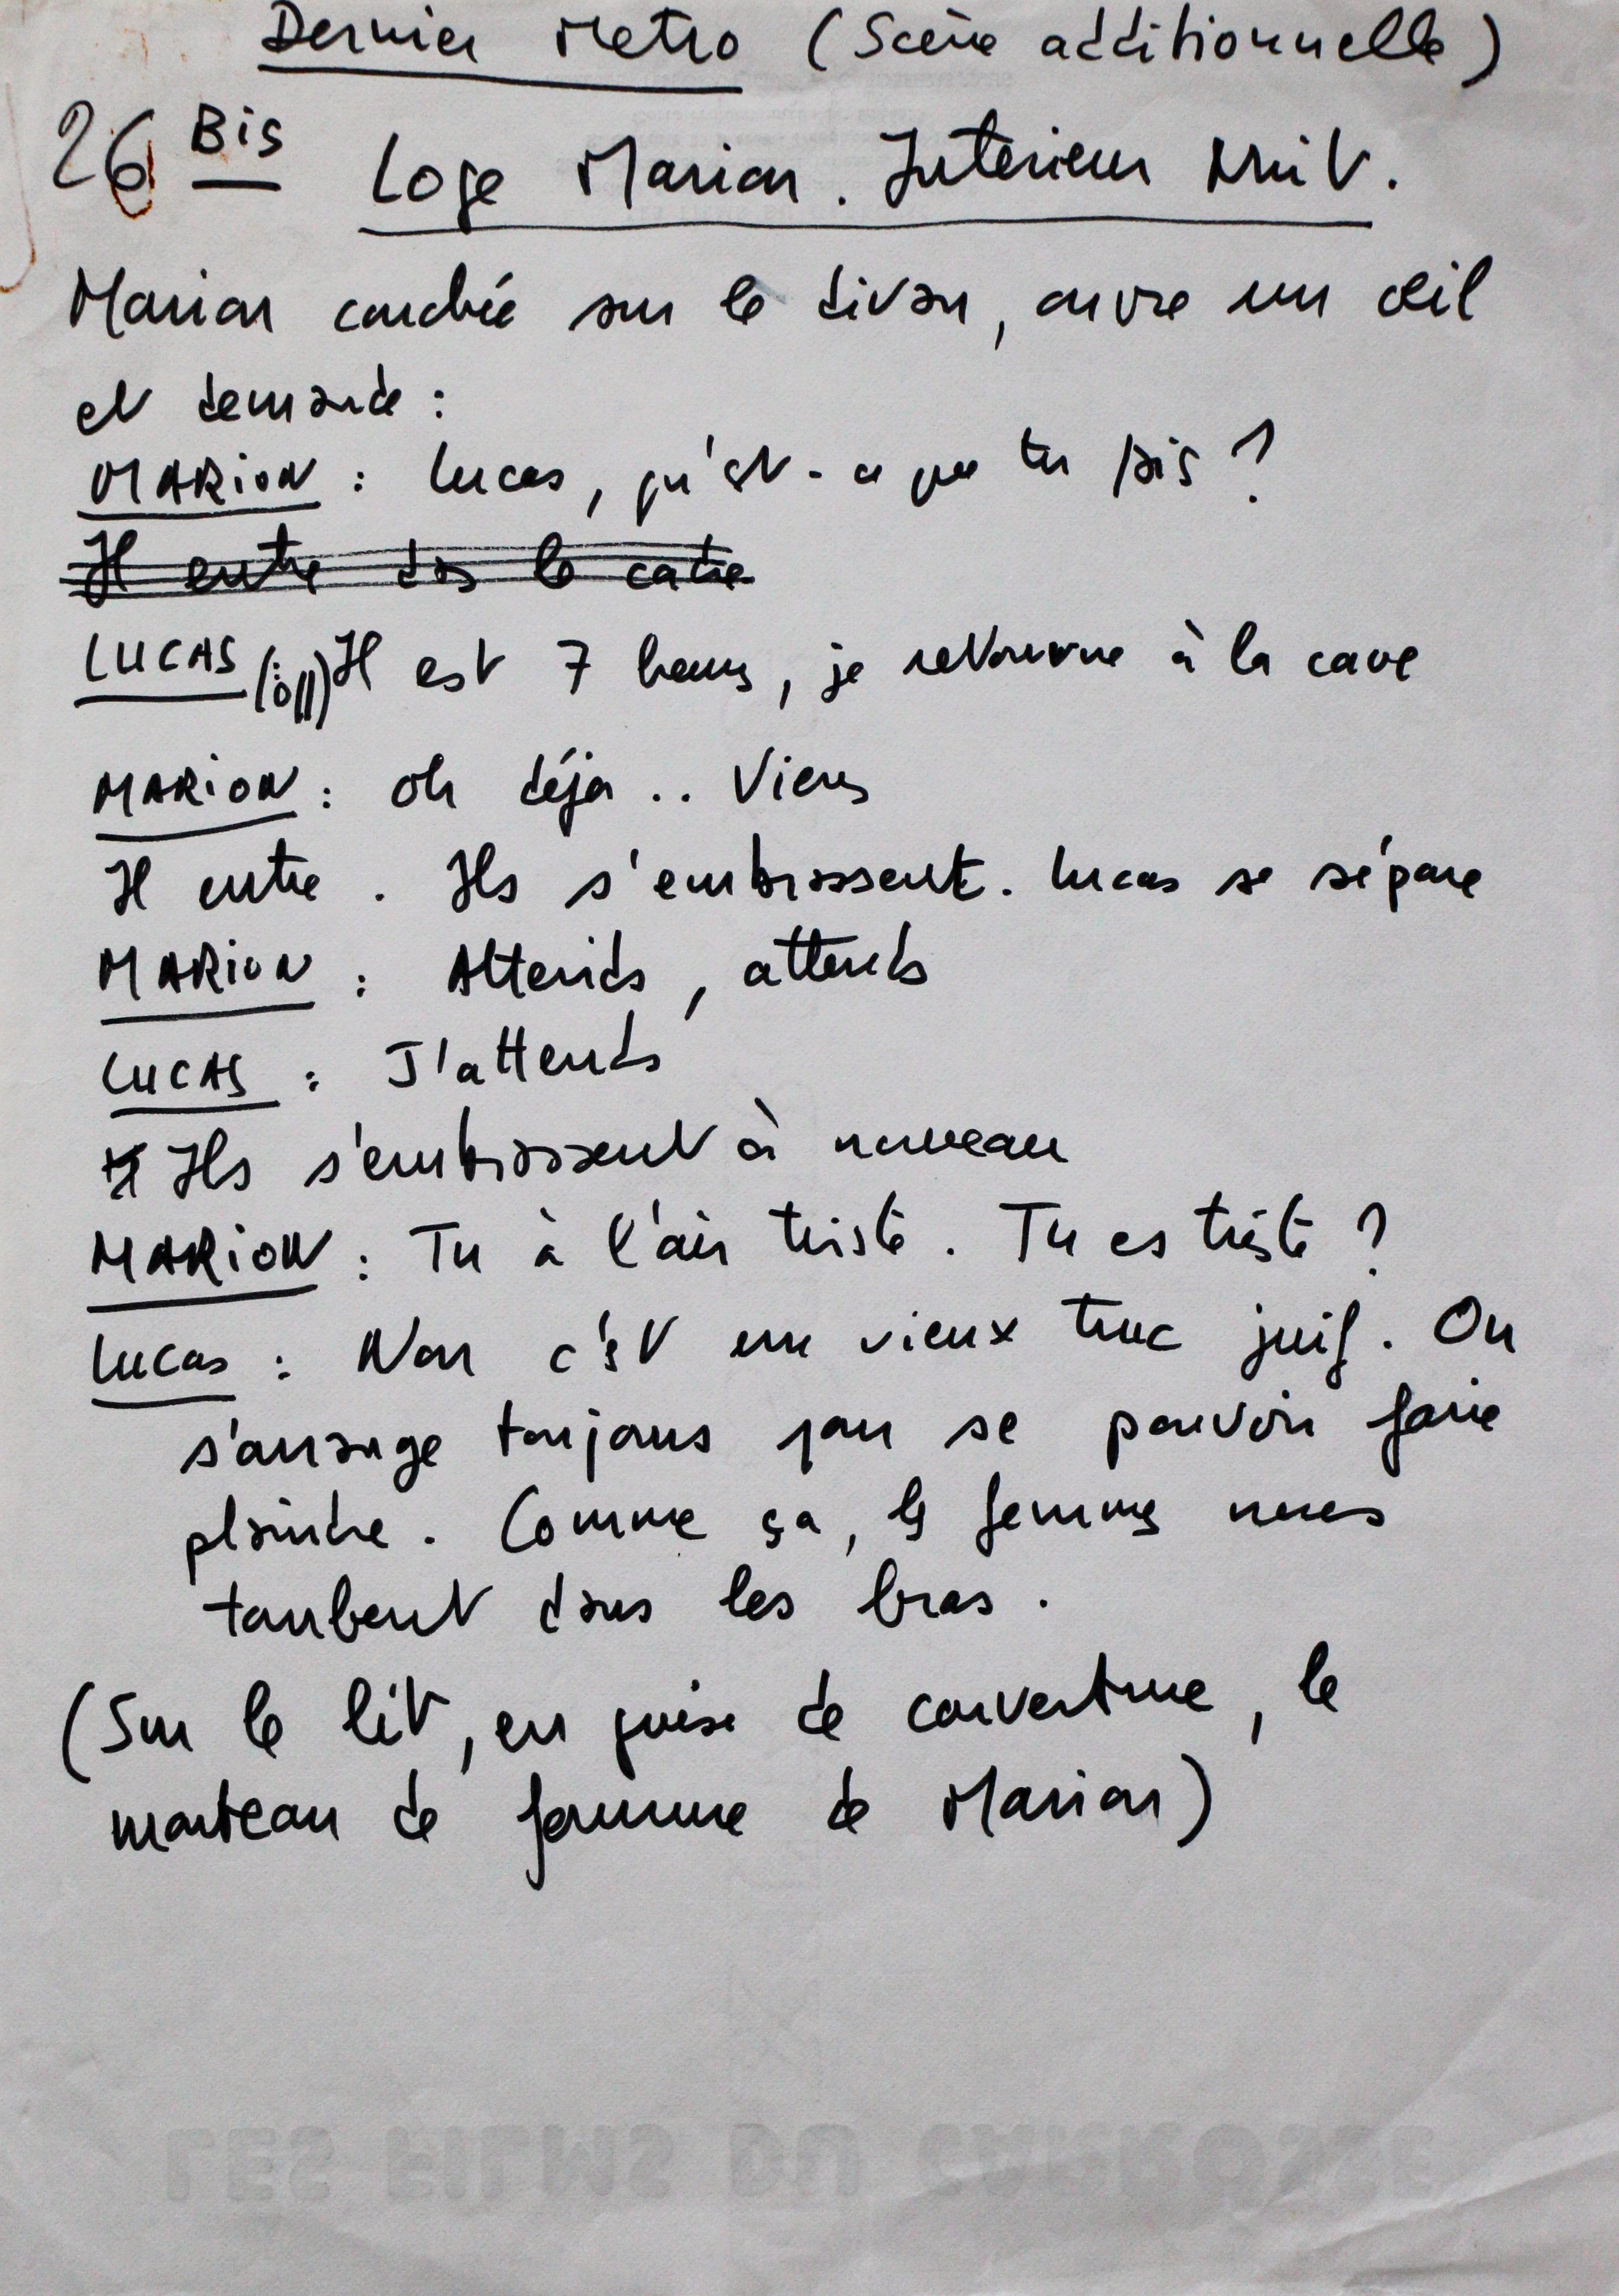 Dernier Metro (Scène additionnelle)
26 Bis
Loge Marion. Intérieur Nuit.
Marion couchée sur le divan, ouvre un œil
et demande :
MARION : Lucas, qu'est-ce que tu fais ?
Il entre dans le cadre
LUCAS (off) Il est 7 heures, je retourne à la cave
MARION : Oh déja .. Viens
Il entre. Ils s'embrassent. Lucas se sépare
MARION : Attends, attends
LUCAS : J'attends
Ils s'embrassent à nouveau
MARION : Tu à l'air triste. Tu es triste ?
Lucas : Non c'est un vieux truc juif. On
s'arrange toujours pour se pouvoir faire
plaindre. Comme ça, les femmes nous
tombent dans les bras.
(Sur le lit, en guise de couverture, le
manteau de fourrure de Marion)
LES FILMS DU CARROSSE